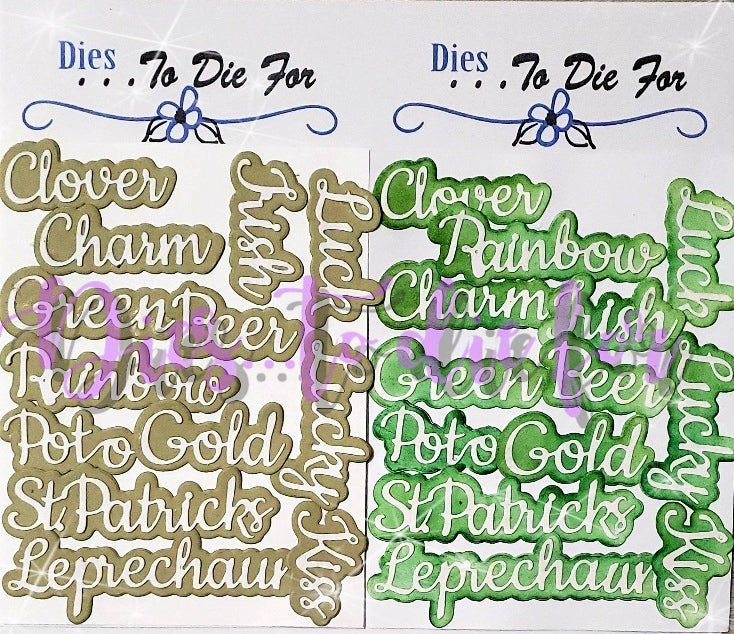 Dies
. . . To Die For
Clover
Irish
Luck
Charm
Green Beer
Rainbow
Lucky
Pot o Gold
St. Patricks
Leprechaun
Kiss
Dies
. . . To Die For
Clover
Luck
Rainbow
Charm Irish
Green Beer
Lucky
Pot o Gold
St. Patricks
Leprechaun
Kiss
Dies...To die for